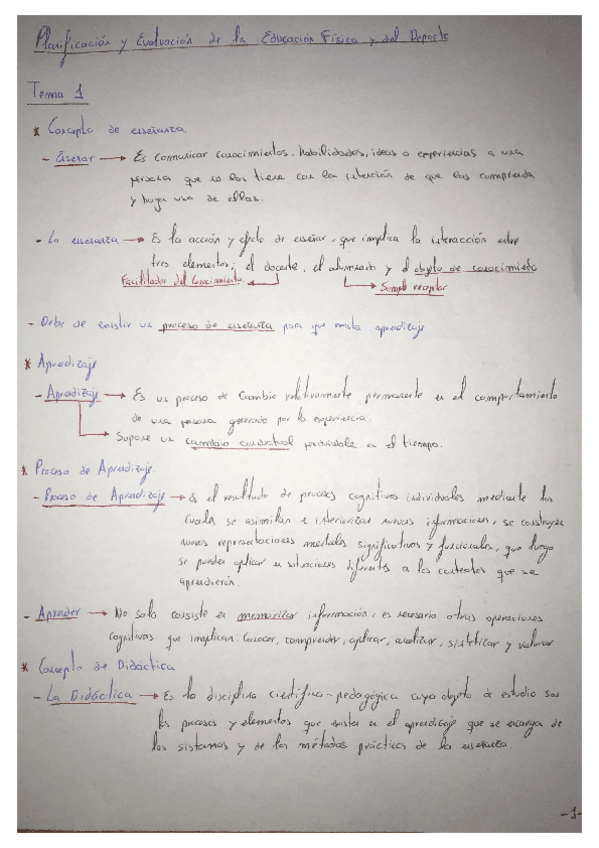 Planificación y Evaluación de la Educación Física y del Deporte
Tema 1
* Concepto de enseñanza.
- Enseñar → Es comunicar conocimientos, habilidades, ideas o experiencias a una
persona que no las tiene con la intención de que las comprenda
y haga uso de ellas.
- La enseñanza → Es la acción y efecto de enseñar, que implica la interacción entre
tres elementos; el docente, el alumnado y el objeto de conocimiento
Facilitador del Conocimiento
Simple receptor
- Debe de existir un proceso de enseñanza para que exista aprendizaje
* Aprendizaje
- Aprendizaje → Es un proceso de Cambio relativamente permanente en el comportamiento
de una persona generado por la experiencia.
Supone un cambio conductual perdurable en el tiempo.
* Proceso de Aprendizaje.
- Proceso de Aprendizaje → Es el resultado de procesos cognitivos individuales mediante los
cuales se asimilan e interiorizan nuevas informaciones, se construyen
nuevas representaciones mentales significativas y funcionales, que luego
se pueden aplicar en situaciones diferentes a los contextos que se
aprendieron.
- Aprender → No solo consiste en memorizar información, es necesario otras operaciones
cognitivas que implican: Conocer, comprender, aplicar, analizar, sintetizar y valorar
* Concepto de Didáctica
- La Didáctica → Es la disciplina científico-pedagógica cuyo objeto de estudio son
los procesos y elementos que existen en el aprendizaje que se encarga de
los sistemas y de los métodos prácticos de la enseñanza.
-1-